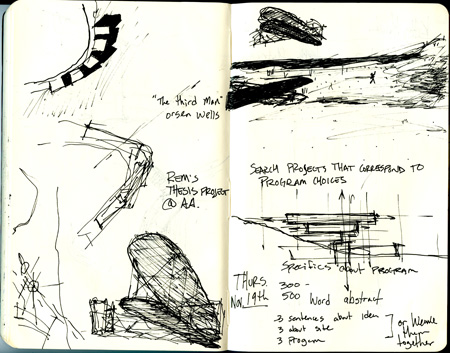 "The third Man"
orsen Wells
REM'S
THESIS PROJECT
@ AA.
SEARCH PROJECTS THAT CORRESPOND TO
PROGRAM CHOICES
Specifics about PROGRAM
THURS.
NOV. 19th
300 -
500 Word abstract
3 sentences about idea
3 about site
3 Program
or Weave
them
together